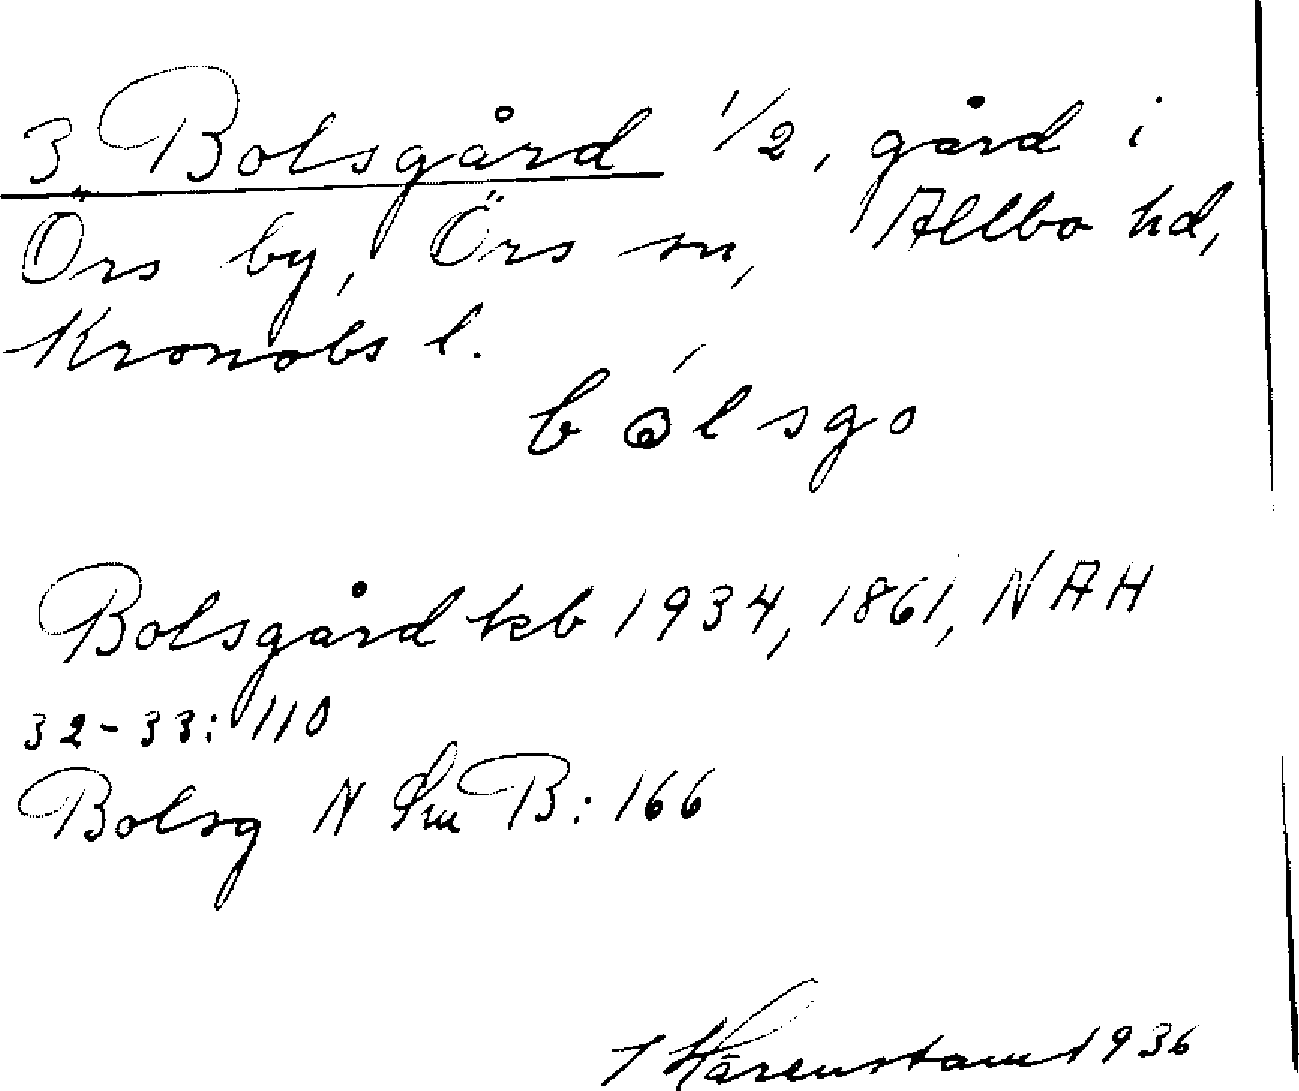 3 Bolsgård 1/2, gård i
Örs by, Örs sn, Allbo hd,
Kronobs l.
bólsgo
Bolsgård kb 1934, 1861, NAH
32-33: 110
Bolsg N Sm B: 166
Härenstam 1936